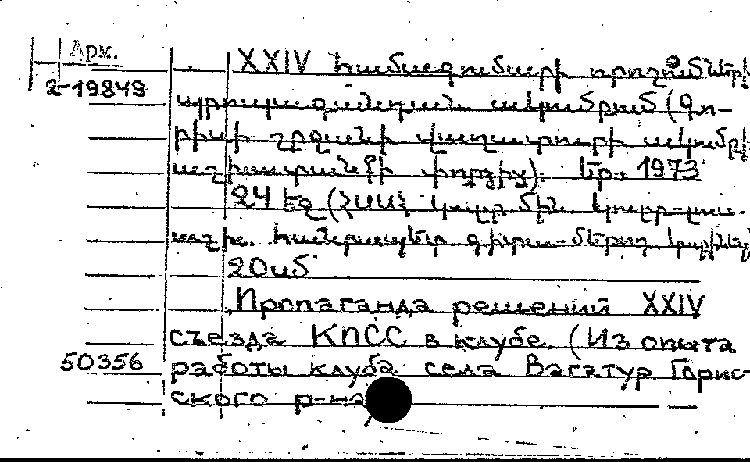 Арм.
2-19849
XXIV համագումարի որոշումների
պրոպագանդան ակումբում (Գո-
րիսի շրջանի Վաղատուրի ակումբի
աշխատանքի փորձից). Եր., 1973
24 էջ (ՀՍՍՀ կուլտ. մին. կուլտ-լուս.
աշխ. հանրապետ գիտա-մեթոդ կաբինետ
20սմ
Пропаганда решений XXIV
съезда КПСС в клубе. (Из опыта
50356
работы клуба села Вагатур Горис-
ского р-на